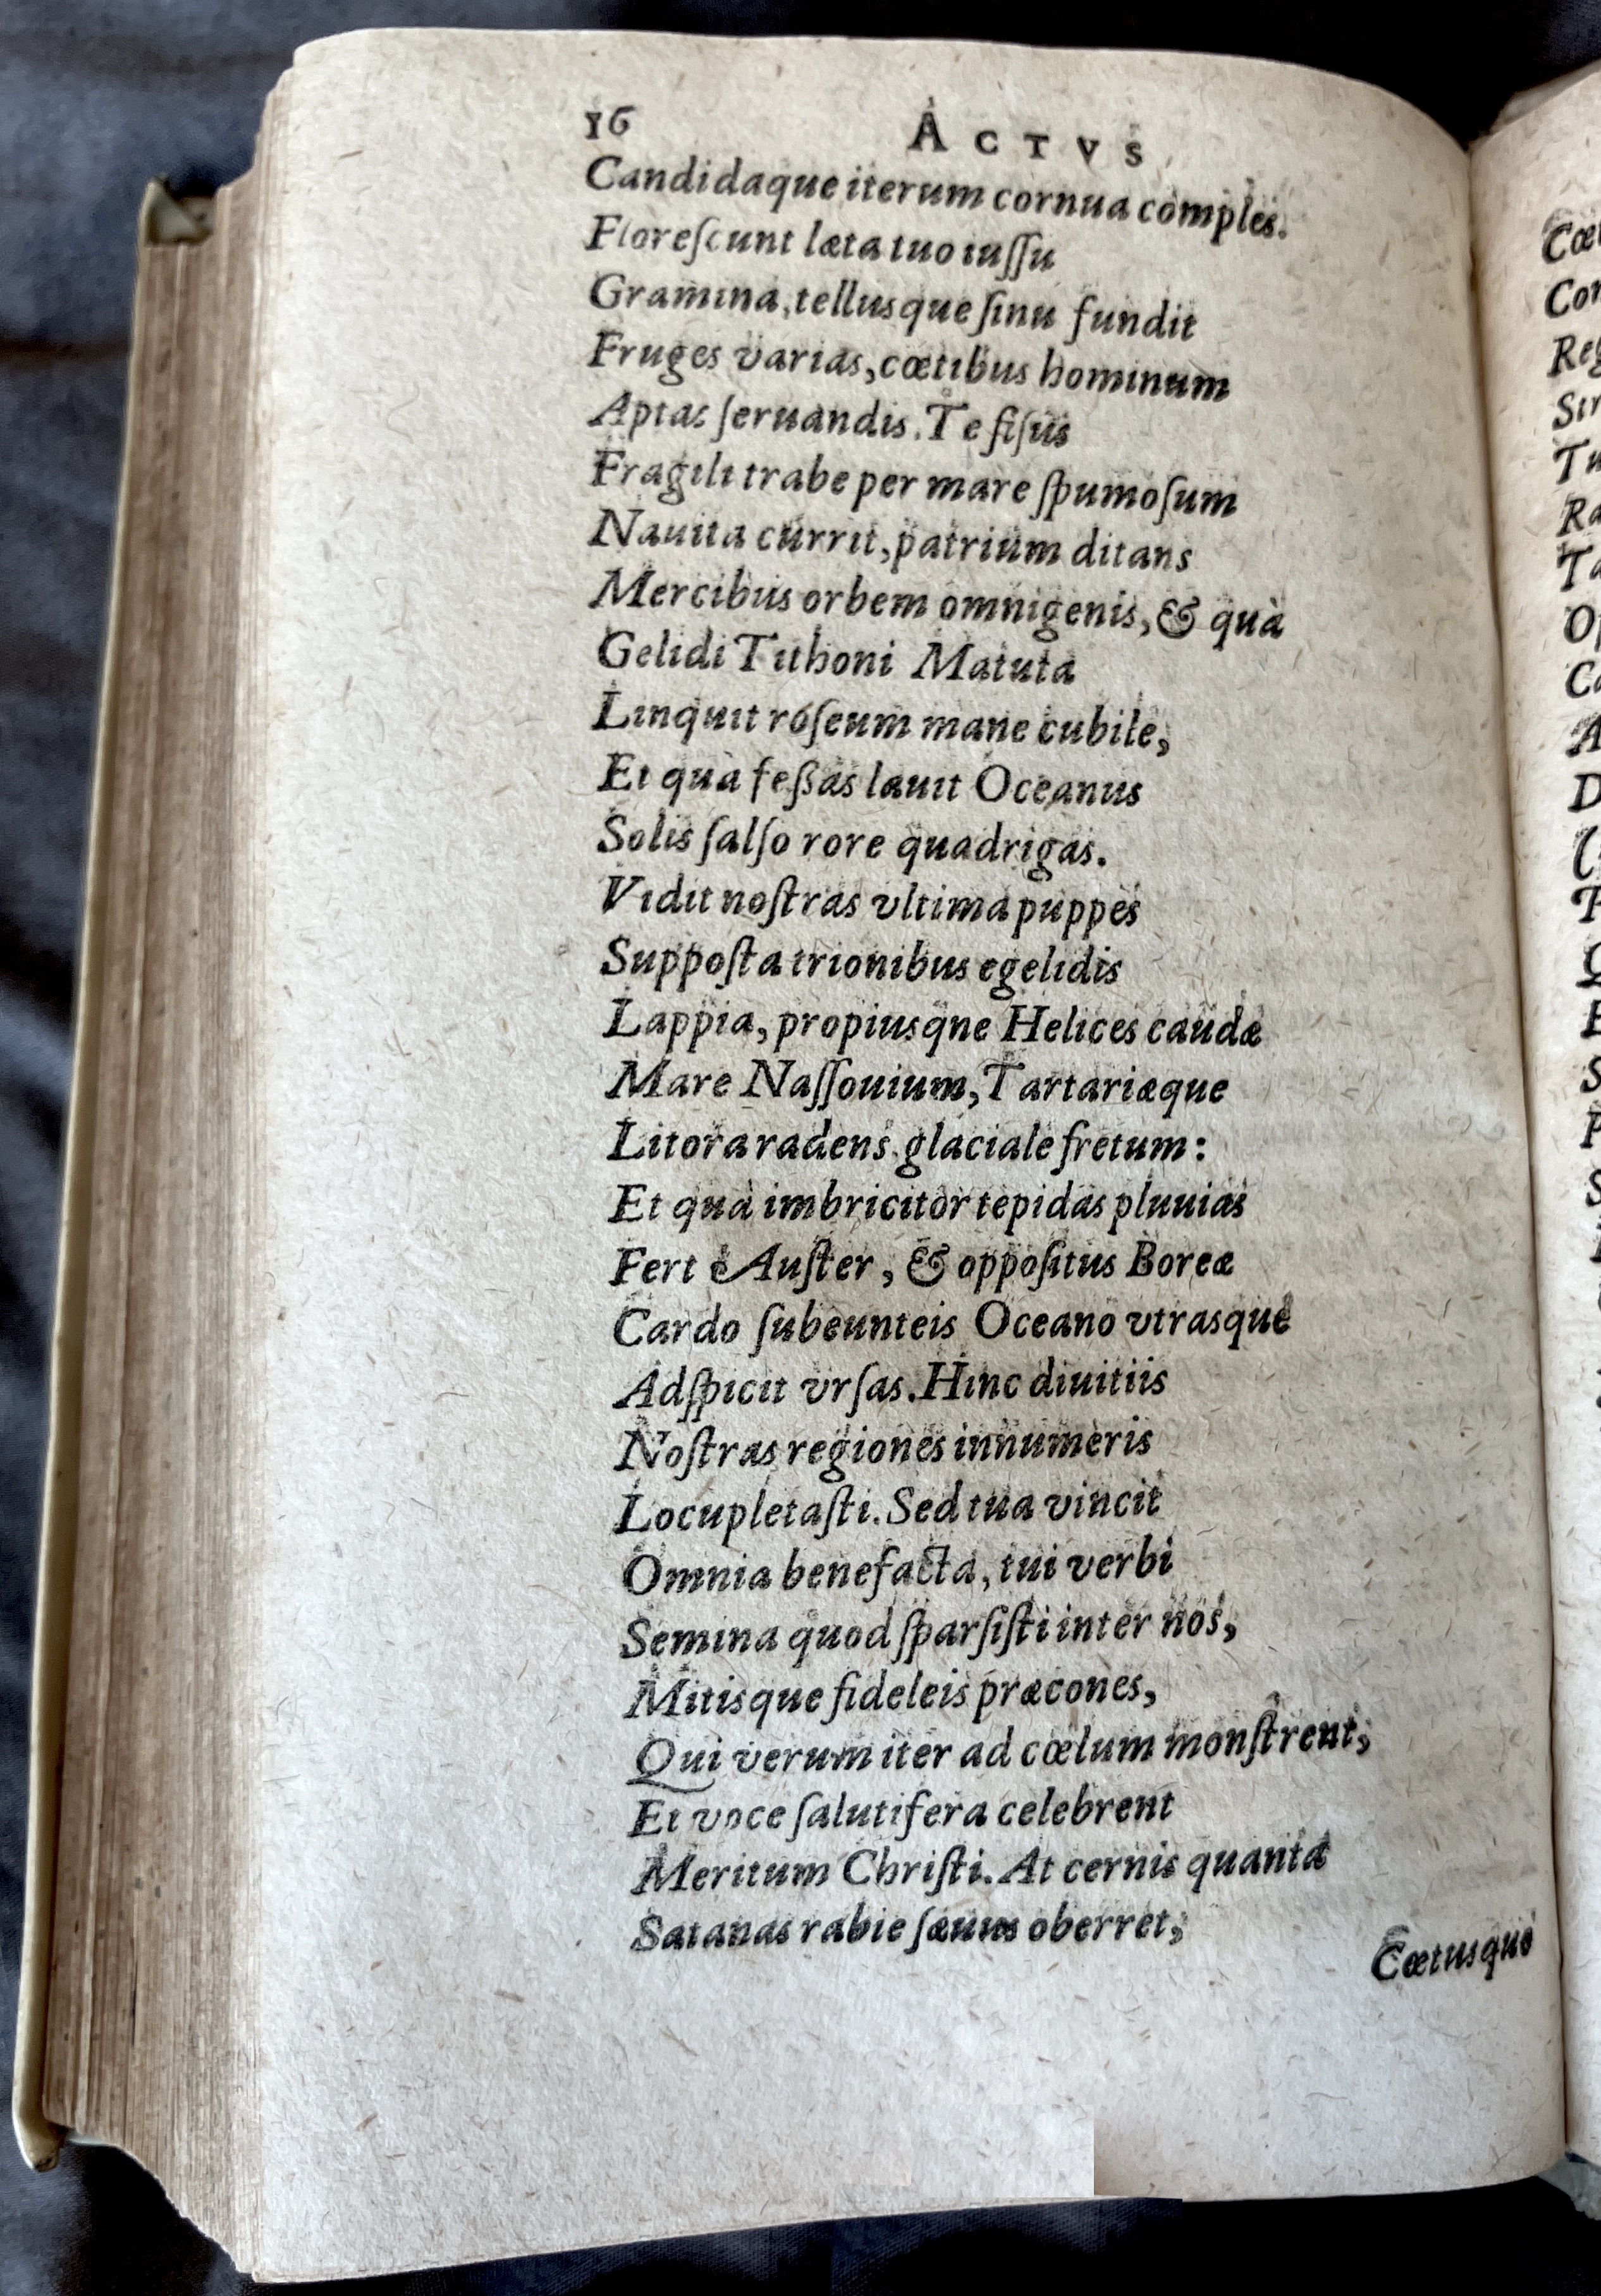 16 ACTVS
Candidaque iterum cornua comples.
Floreſcunt læta tuo iuſſu
Gramina, tellusque ſinu fundit
Fruges varias, cœtibus hominum
Aptas ſeruandis. Te fiſus
Fragili trabe per mare ſpumoſum
Nauita currit, patrium ditans
Mercibus orbem omnigenis, & quà
Gelidi Tithoni Matuta
Linquit roſeum mane cubile,
Et quà feßas lauit Oceanus
Solis ſalſo rore quadrigas.
Vidit noſtras vltima puppes
Suppoſta trionibus egelidis
Lappia, propiusqne Helices caudæ
Mare Naſſouium, Tartariæque
Litora radens glaciale fretum:
Et quà imbricitor tepidas pluuias
Fert Auſter, & oppoſitus Boreæ
Cardo ſubeunteis Oceano vtrasque
Adſpicit vrſas. Hinc diuitiis
Noſtras regiones innumeris
Locupletaſti. Sed tua vincit
Omnia benefacta, tui verbi
Semina quod ſparſiſti inter nos,
Mitisque fideleis præcones,
Qui verum iter ad cœlum monſtrent,
Et voce ſalutifera celebrent
Meritum Chriſti. At cernis quanta
Satanas rabie ſæuus oberret,
Cœtusque
Cœt
Con
Reg
Str
Tu
Ra
Ta
Op
Ca
A
D